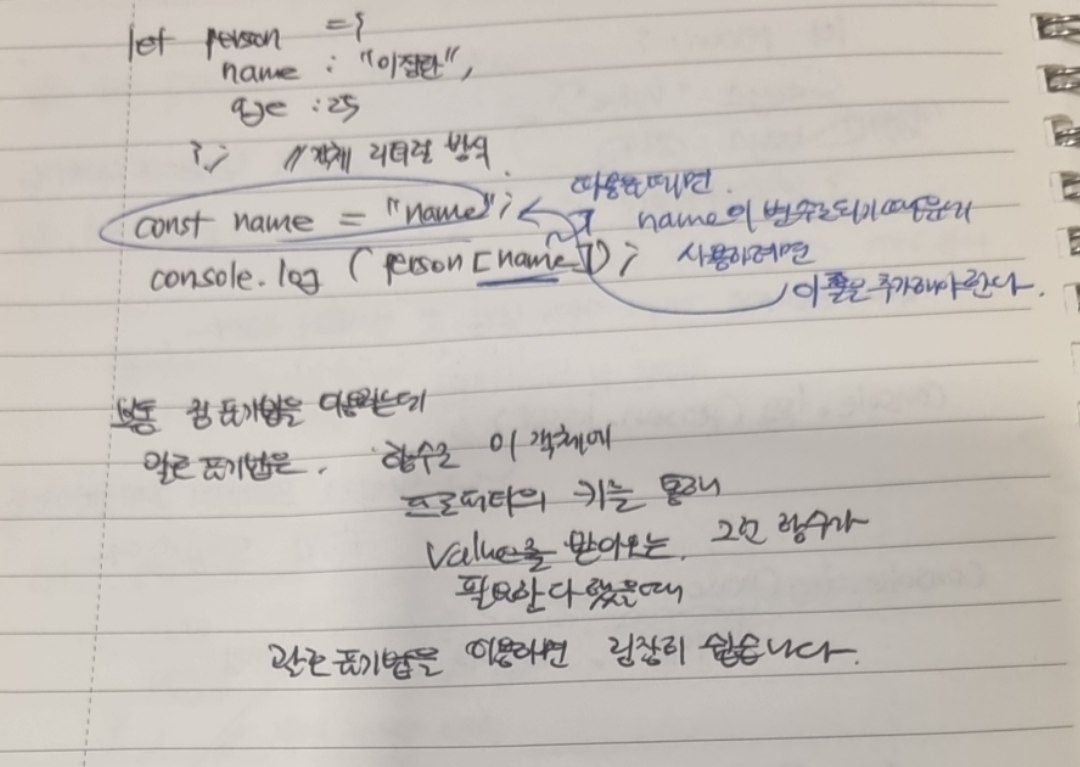 let person = {
name : "이정환",
age : 25
}; // 객체 리터럴 방식
const name = "name";
console.log ( person [name]);
따옴표 떼면.
name이 변수로 되기 때문에
사용하려면
이 줄은 추가해야 한다.
보통 점 표기법을 이용하는데
괄호 표기법은, 함수로 이 객체에
프로퍼티의 키를 통해
value를 받아오는, 그런 함수가
필요한다 했을 때
괄호 표기법을 이용하면 굉장히 쉽습니다.